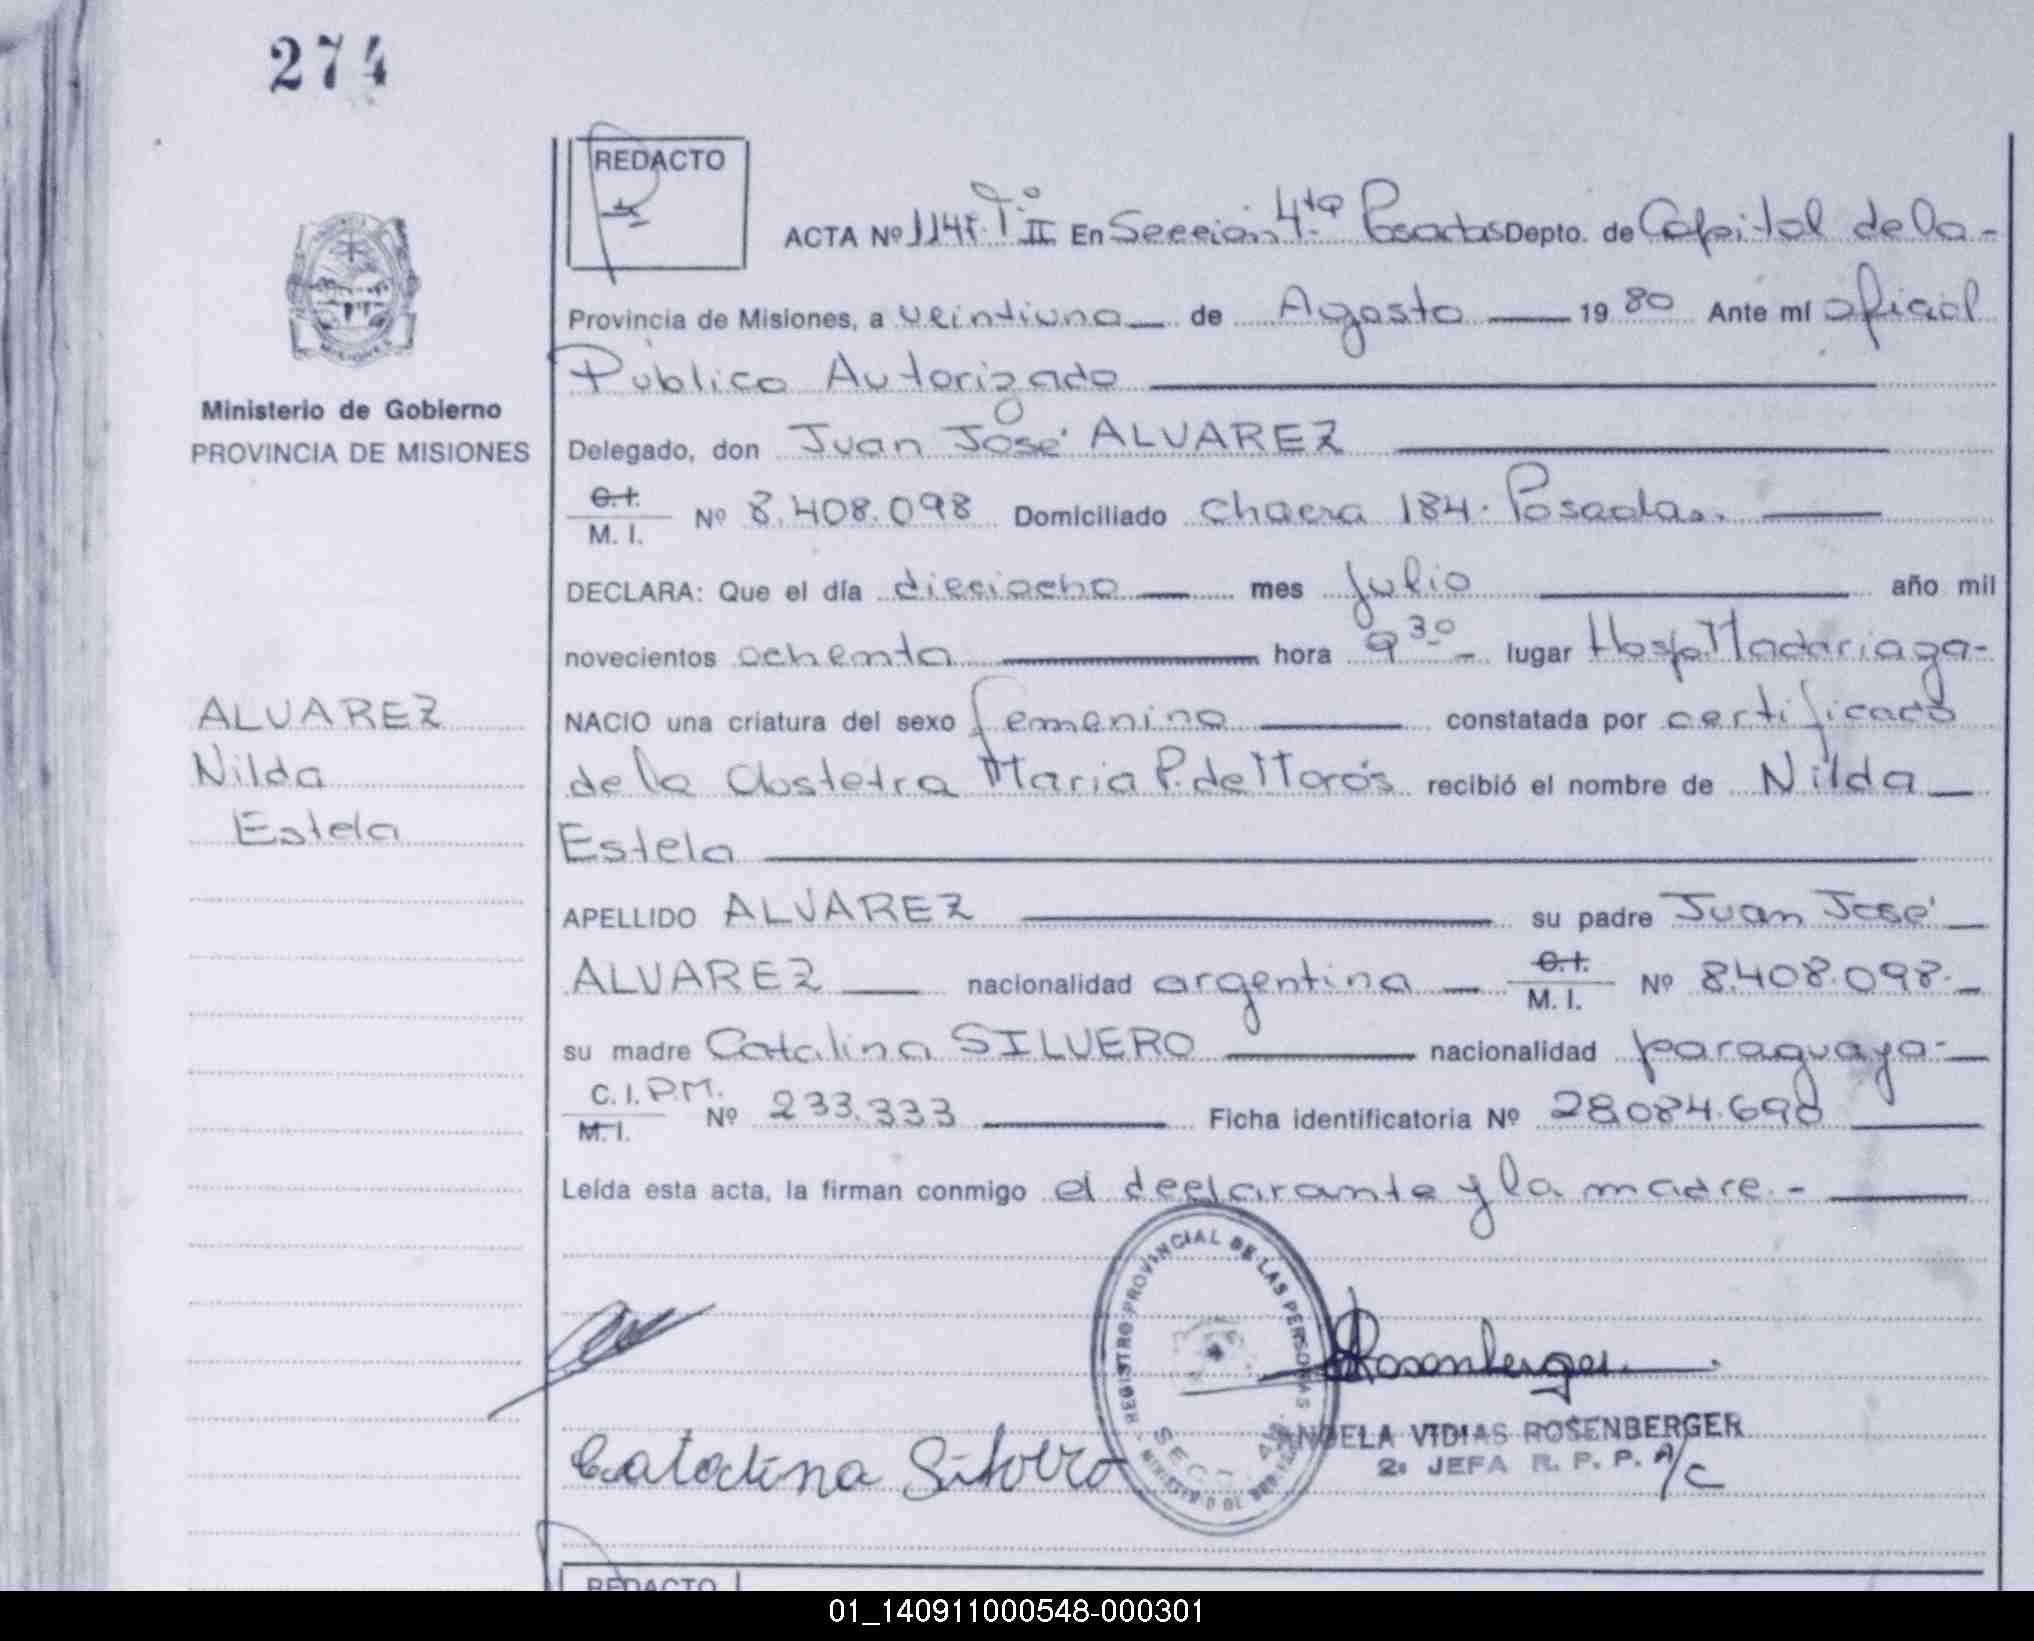 274
REDACTO
ACTA Nº T° II En Sección 4ta Posadas Depto. de Capital de la -
Provincia de Misiones, a veintiuno de Agosto 19 80 Ante mí oficial
Público Autorizado
Ministerio de Gobierno
PROVINCIA DE MISIONES
Delegado, don Juan José ALVAREZ
C.I.
M. I. Nº 8.408.098 Domiciliado chacra 184. Posadas.
DECLARA: Que el día dieciocho mes julio año mil
novecientos ochenta hora 9 30 - lugar Hosp. Madariaga-
ALVAREZ
Nilda
Estela
NACIO una criatura del sexo femenino constatada por certificado
de la Obstetra Maria P. de Morós recibió el nombre de Nilda
Estela
APELLIDO ALVAREZ su padre Juan José
ALVAREZ nacionalidad argentina C.I. M. I. Nº 8.408.098.-
su madre Catalina SILVERO nacionalidad paraguaya-
C. I. P.M.
M. I. Nº 233.333 Ficha identificatoria Nº 28.084.690
Leída esta acta, la firman conmigo el declarante y la madre.-
REGISTRO PROVINCIAL DE LAS PERSONAS
SECC. 4a.
Rosenberger
Catalina Silvero
ANGELA VIDIAS ROSENBERGER
2ª JEFA R. P. P. A/C
REDACTO
01_140911000548-000301